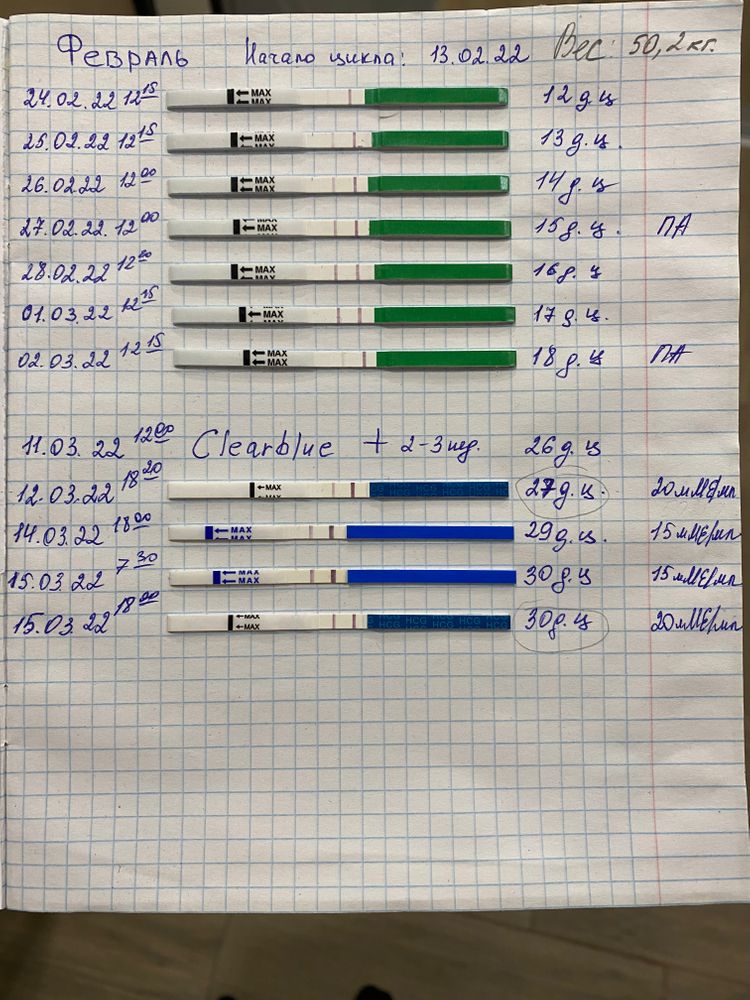 Февраль Начало цикла: 13.02.22 Вес: 50,2 кг.
24.02.22 12¹⁵ MAX MAX 12 д.ц
25.02.22 12¹⁵ MAX MAX 13 д.ц.
26.02.22 12⁰⁰ MAX MAX 14 д.ц
27.02.22. 12⁰⁰ MAX MAX 15 д.ц. ПА
28.02.22 12²⁰ MAX MAX 16 д.ц
01.03.22 12¹⁵ MAX MAX 17 д.ц.
02.03.22 12¹⁵ MAX MAX 18 д.ц ПА
11.03.22 12⁰⁰ Clearblue + 2-3 нед. 26 д.ц
12.03.22 18²⁰ MAX MAX HCG HCG HCG HCG 27 д.ц. 20 мМЕ/мл
14.03.22 18⁰⁰ MAX MAX 29 д.ц. 15 мМЕ/мл
15.03.22 7³⁰ MAX MAX 30 д.ц 15 мМЕ/мл
15.03.22 18⁰⁰ MAX MAX HCG HCG HCG HCG HCG 30 д.ц 20 мМЕ/мл